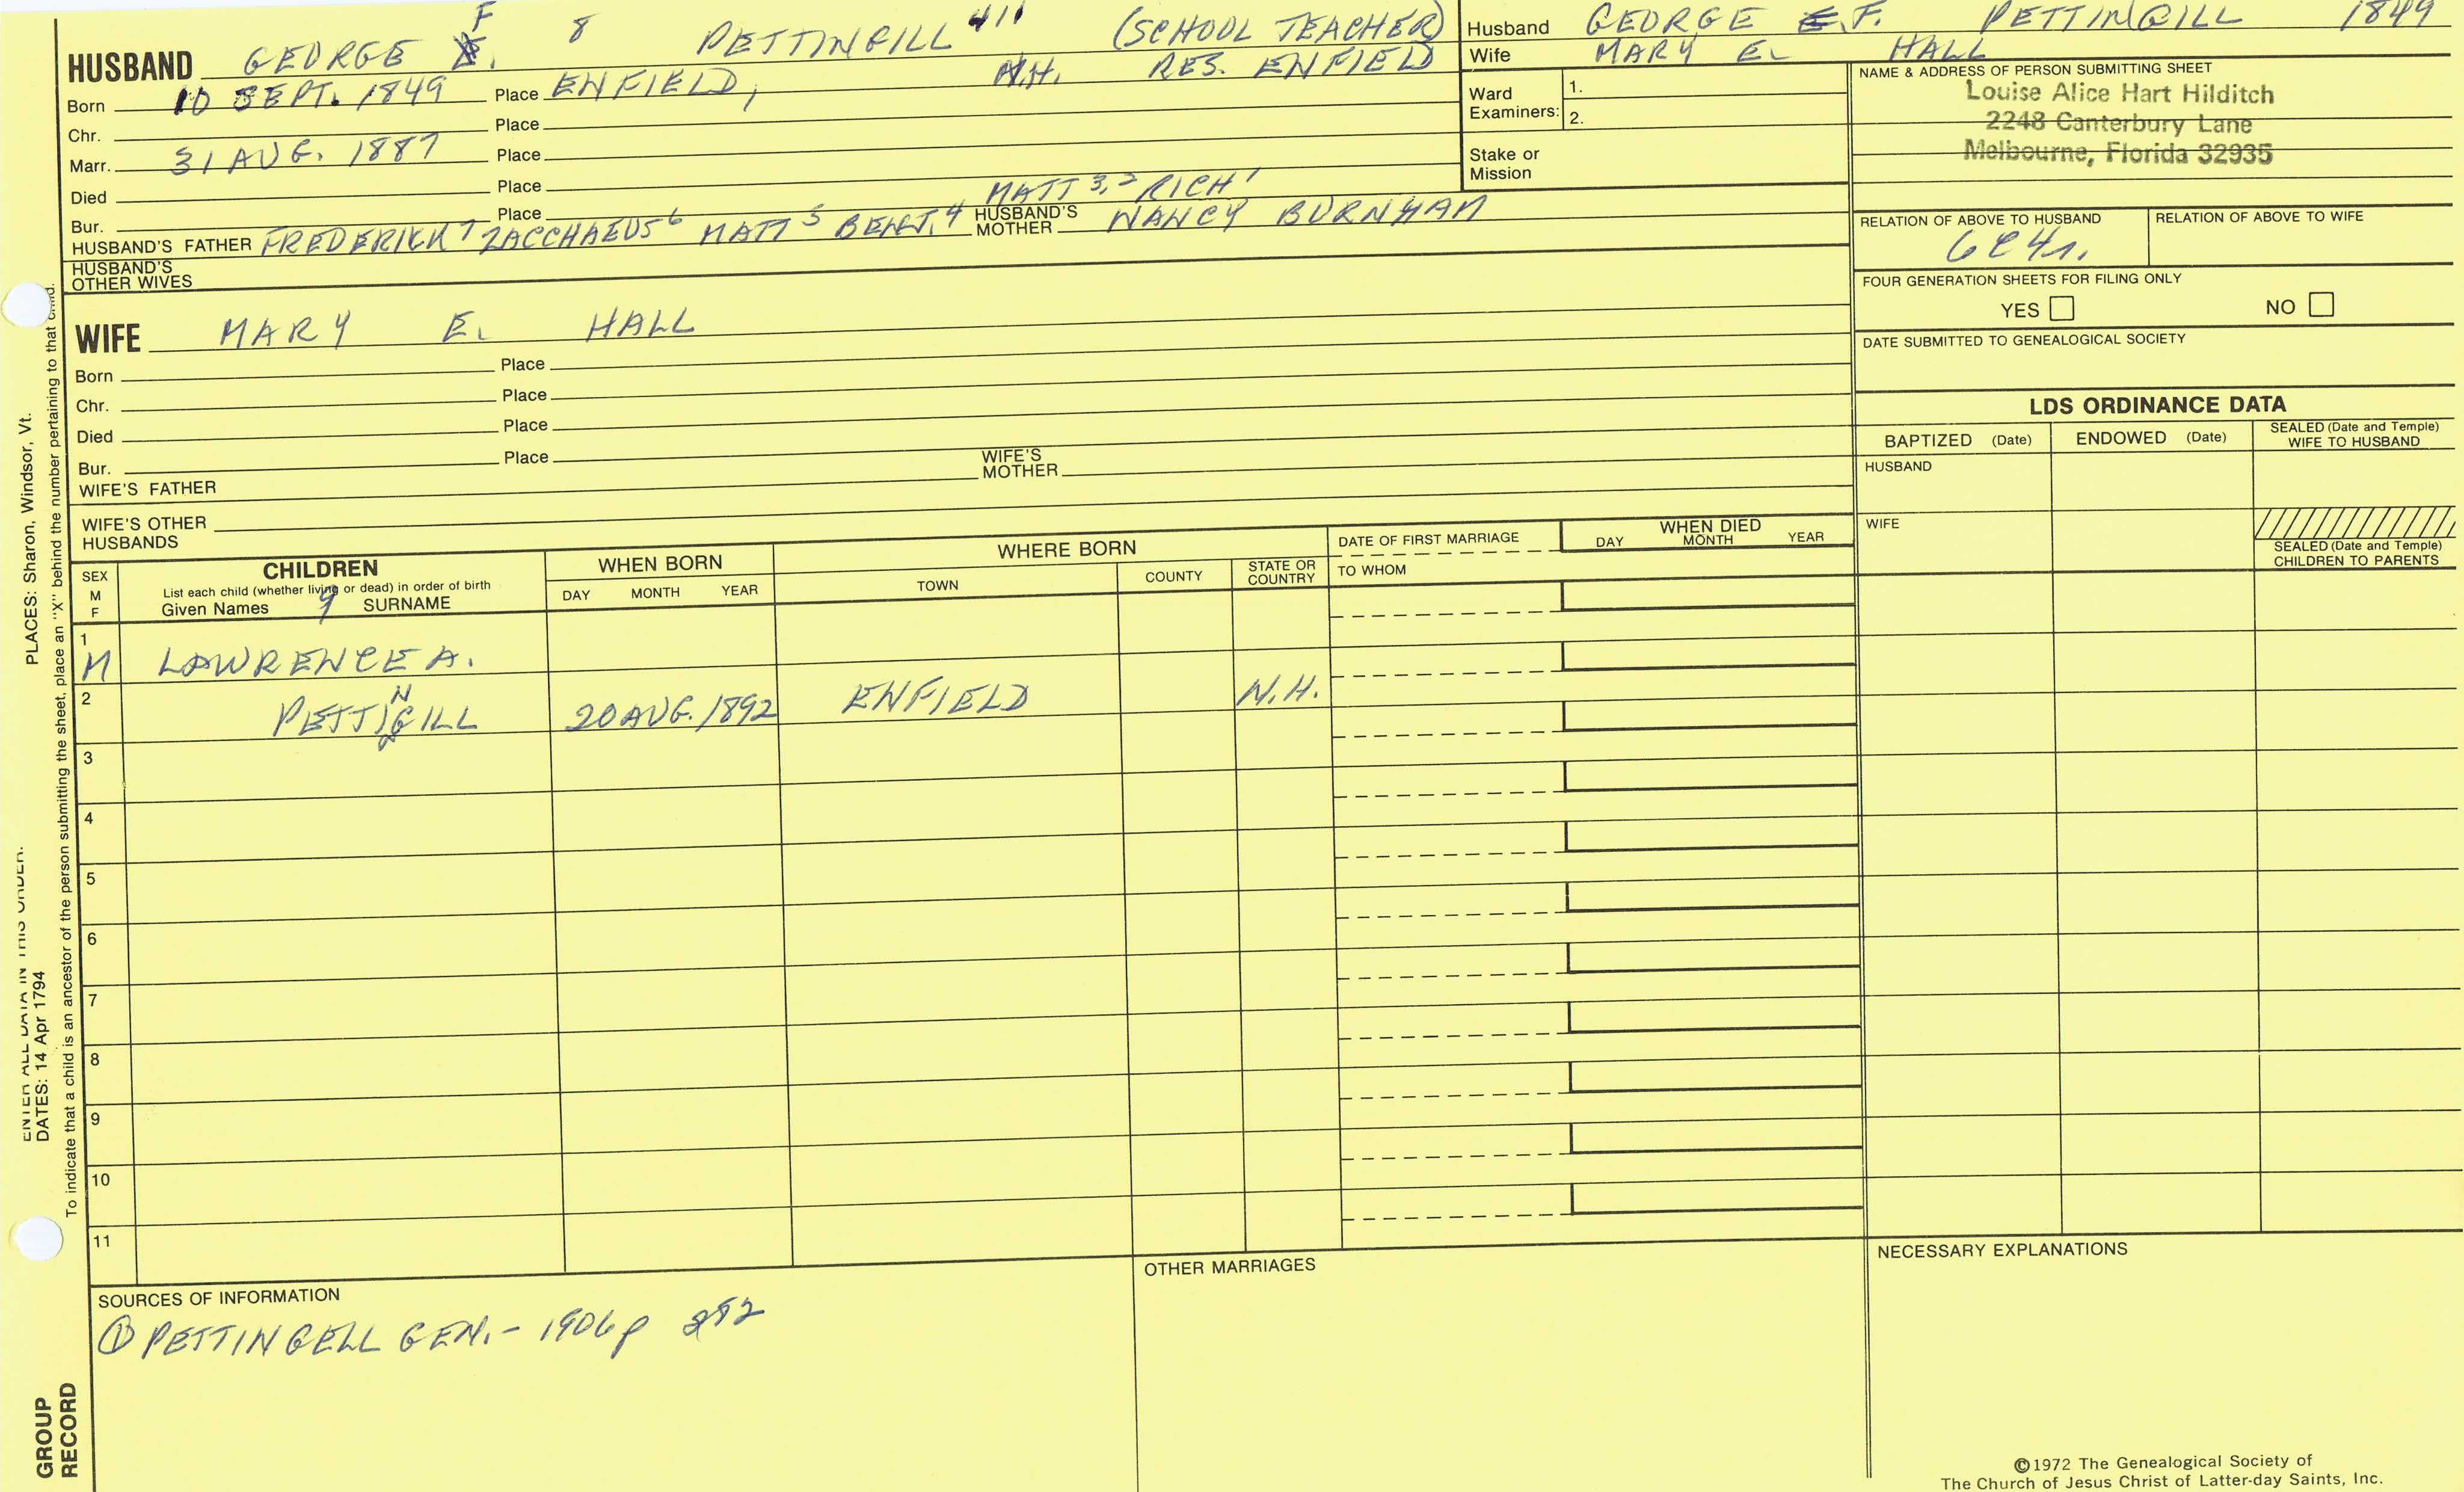 HUSBAND GEORGE F. 8 PETTINGILL 411 (SCHOOL TEACHER)
Born 10 SEPT. 1849 Place ENFIELD, N.H. RES. ENFIELD
Chr. Place
Marr. 31 AUG. 1887 Place
Died Place
Bur. Place MATT 3,2 RICH 1
HUSBAND'S FATHER FREDERICK 7 ZACCHAEUS 6 MATT 5 BENJ. 4 HUSBAND'S MOTHER NANCY BURNHAM
HUSBAND'S OTHER WIVES
Husband GEORGE E F. PETTINGILL 1849
Wife MARY E. HALL
Ward Examiners: 1.
2.
Stake or Mission
NAME & ADDRESS OF PERSON SUBMITTING SHEET
Louise Alice Hart Hilditch
2248 Canterbury Lane
Melbourne, Florida 32935
RELATION OF ABOVE TO HUSBAND RELATION OF ABOVE TO WIFE
6C4r.
FOUR GENERATION SHEETS FOR FILING ONLY
YES NO
DATE SUBMITTED TO GENEALOGICAL SOCIETY
WIFE MARY E. HALL
Born Place
Chr. Place
Died Place
Bur. Place
WIFE'S FATHER WIFE'S MOTHER
WIFE'S OTHER HUSBANDS
LDS ORDINANCE DATA
BAPTIZED (Date) ENDOWED (Date) SEALED (Date and Temple) WIFE TO HUSBAND
HUSBAND
WIFE
SEALED (Date and Temple) CHILDREN TO PARENTS
SEX M F
CHILDREN
List each child (whether living or dead) in order of birth
Given Names 9 SURNAME
WHEN BORN
DAY MONTH YEAR
WHERE BORN
TOWN COUNTY STATE OR COUNTRY
DATE OF FIRST MARRIAGE
TO WHOM
WHEN DIED
DAY MONTH YEAR
1
M LAWRENCE A.
2 PETTINGILL 20 AUG. 1892 ENFIELD N.H.
3
4
5
6
7
8
9
10
11
SOURCES OF INFORMATION
① PETTINGELL GEN. - 1906 p 292
OTHER MARRIAGES
NECESSARY EXPLANATIONS
©1972 The Genealogical Society of
The Church of Jesus Christ of Latter-day Saints, Inc.
PLACES: Sharon, Windsor, Vt.
ENTER ALL DATA IN THIS ORDER:
DATES: 14 Apr 1794
To indicate that a child is an ancestor of the person submitting the sheet, place an "X" behind the number pertaining to that child.
GROUP
RECORD